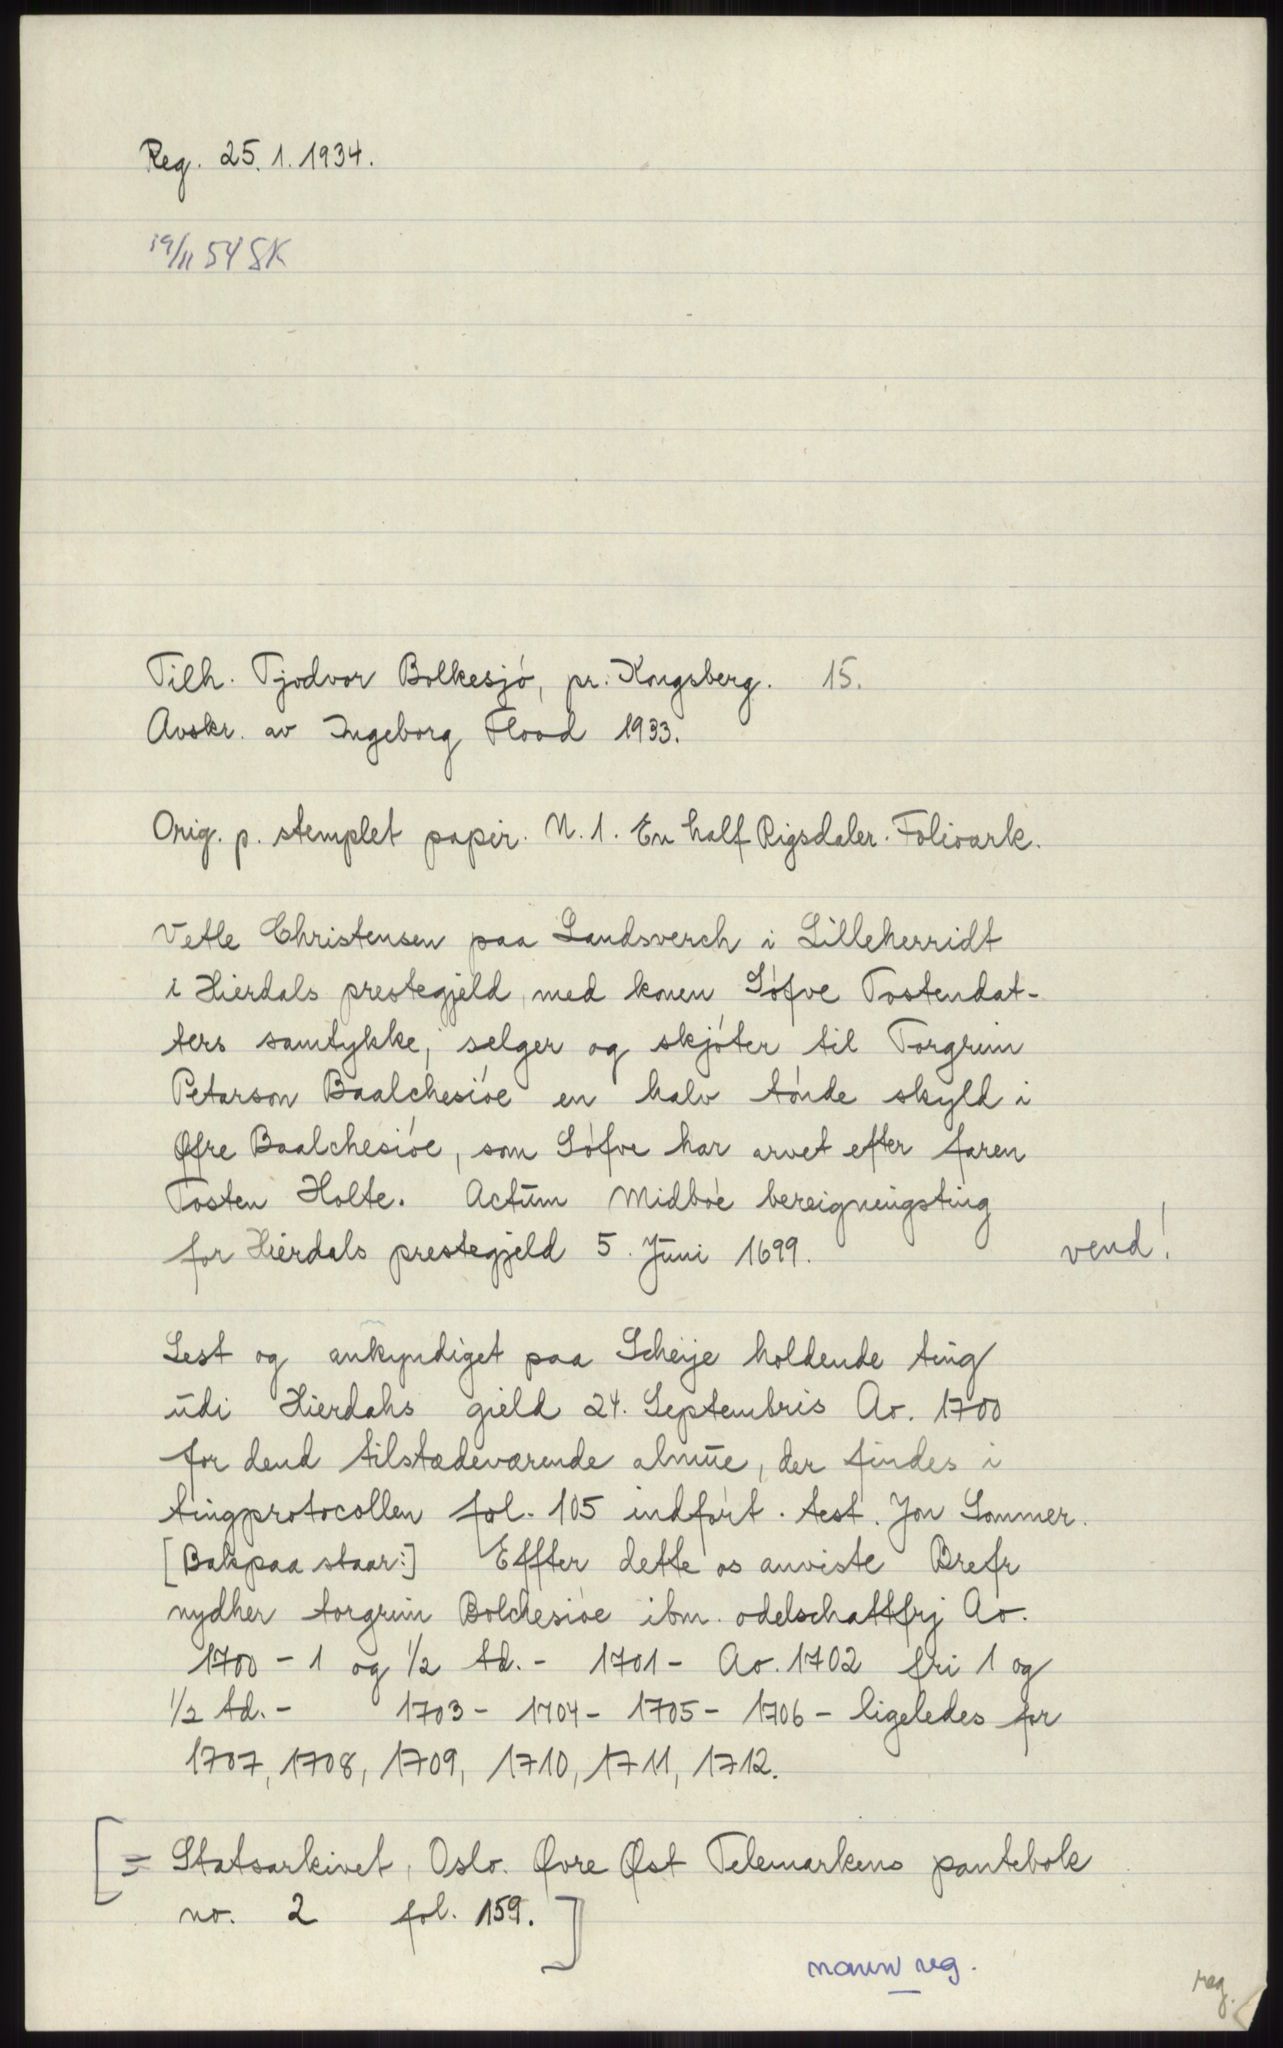 Reg. 25. 1. 1934.
19/11 54 SK
Tilh. Tjodvor Bolkesjø, pr. Kongsberg. 15.
Avskr. av Ingeborg Flood 1933.
Orig. p. stemplet papir. N. 1. En half Rigsdaler. Folioark.
Vetle Christensen paa Landsverch i Lilleherridt
i Hierdals prestegjeld, med konen Løfve Tostendat-
ters samtykke, selger og skjøter til Torgrim
Peterson Baalchesiøe en halv tønde skyld i
Øfre Baalchesiøe, som Løfve har arvet efter faren
Tosten Holte. Actum Midbøe bereigningsting
for Hierdals prestegjeld 5. Juni 1699.
vend!
Lest og ankyndiget paa Scheije holdende ting
udi Hierdahs gield 24. Septembris Ao. 1700
for dend tilstædeværende almue, der findes i
tingprotocollen fol. 105 indført. test. Jon Sommer.
[Bakpaa staar:] Effter dette os anviste Brefr
nydher torgrim Bolchesiøe ibm. odelschattfrj Ao.
1700 - 1 og 1/2 td. - 1701 - Ao. 1702 fri 1 og
1/2 td. - 1703 - 1704 - 1705 - 1706 - ligeledes for
1707, 1708, 1709, 1710, 1711, 1712.
[= Statsarkivet, Oslo. Øvre Øst Telemarkens pantebok
no. 2 fol. 159.]
navnreg.
reg.